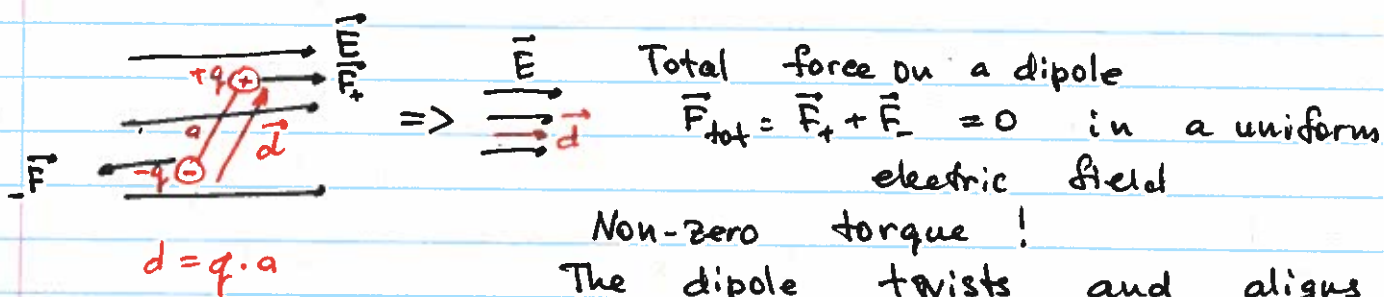 E⃗
+q + F⃗₊
E⃗
Total force on a dipole
a d⃗
=> d⃗
F⃗tot = F⃗₊ + F⃗₋ = 0 in a uniform
F⃗₋ -q −
electric field
Non-zero torque !
d = q · a
The dipole twists and aligns